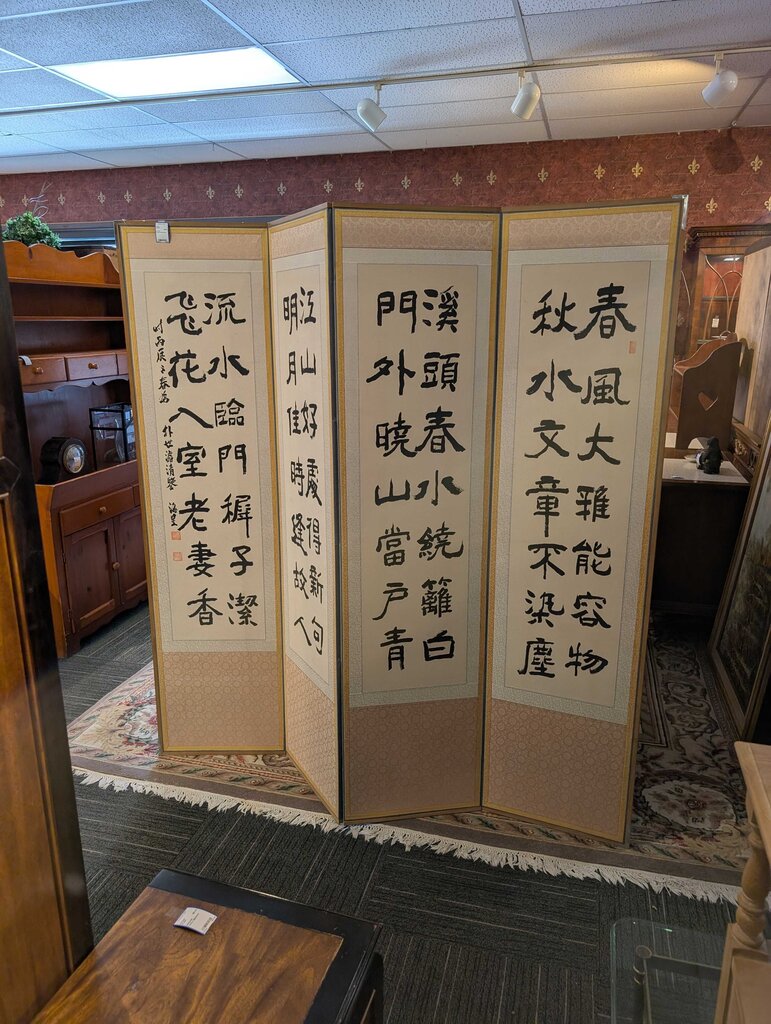 春風大雅能容物
秋水文章不染塵
溪頭春水繞籬白
門外曉山當戶青
江山好處得新句
明月佳時逢故人
流水臨門稺子潔
飛花入室老妻香
時丙辰之春為